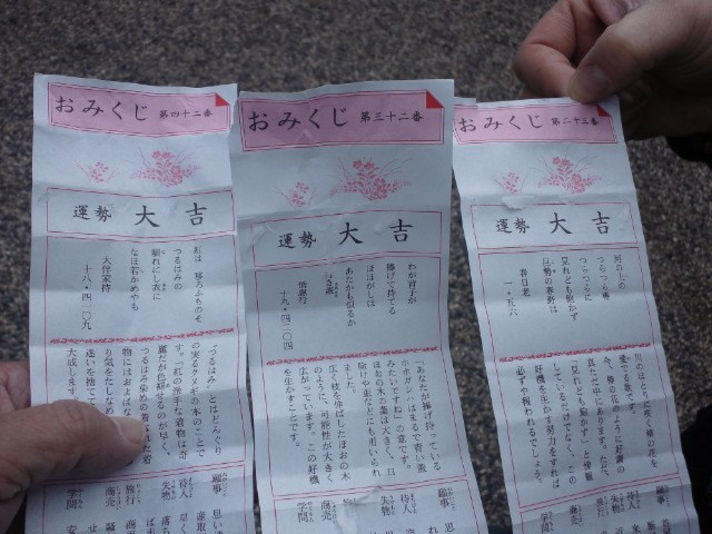 おみくじ 第四十二番
運勢 大吉
紅は 移ろふものそ
つるはみの
馴れにし衣に
なほ若かめやも
大伴家持
十八・四一〇九
"つるはみ"とはどんぐり
の実るクヌギの木のことで
す。「紅の派手な着物は奇
麗だが色褪せるのが早く、
つるはみ染めの着なれた着
物にはおよばな
り気をたしなめ
迷いを捨てて
大成します。
願事 思い
待人 早く
失物 落ち
旅行
商売 騒
学問 安
おみくじ 第三十二番
運勢 大吉
わが背子が
捧げて持てる
ほほがしは
あたかも似るか
青き蓋
僧恵行
十九・四二〇四
「あなたが捧げ持っている
ホホガシハはまるで青い蓋
みたいですね」の意です。
ほおの木の葉は大きく、日
除けや傘などにも用いられ
ました。
広く枝を伸ばしたほおの木
のように、可能性が大きく
広がっています。この好機
を生かすことです。
願事 思
待人
失物
旅行
商売
学問
おみくじ 第二十三番
運勢 大吉
河の上の
つらつら椿
つらつらに
見れども飽かず
巨勢の春野は
春日老
一・五六
川のほとりに咲く椿の花を
愛でる歌です。
今、椿の花のように好調の
真ただ中にあります。ただ、
「見れども飽かず」と傍観
しているだけでなく、この
好機を生かす努力をすれば
必ずや報われるでしょう。
願事 思
待人
失物
旅行
商売
学問